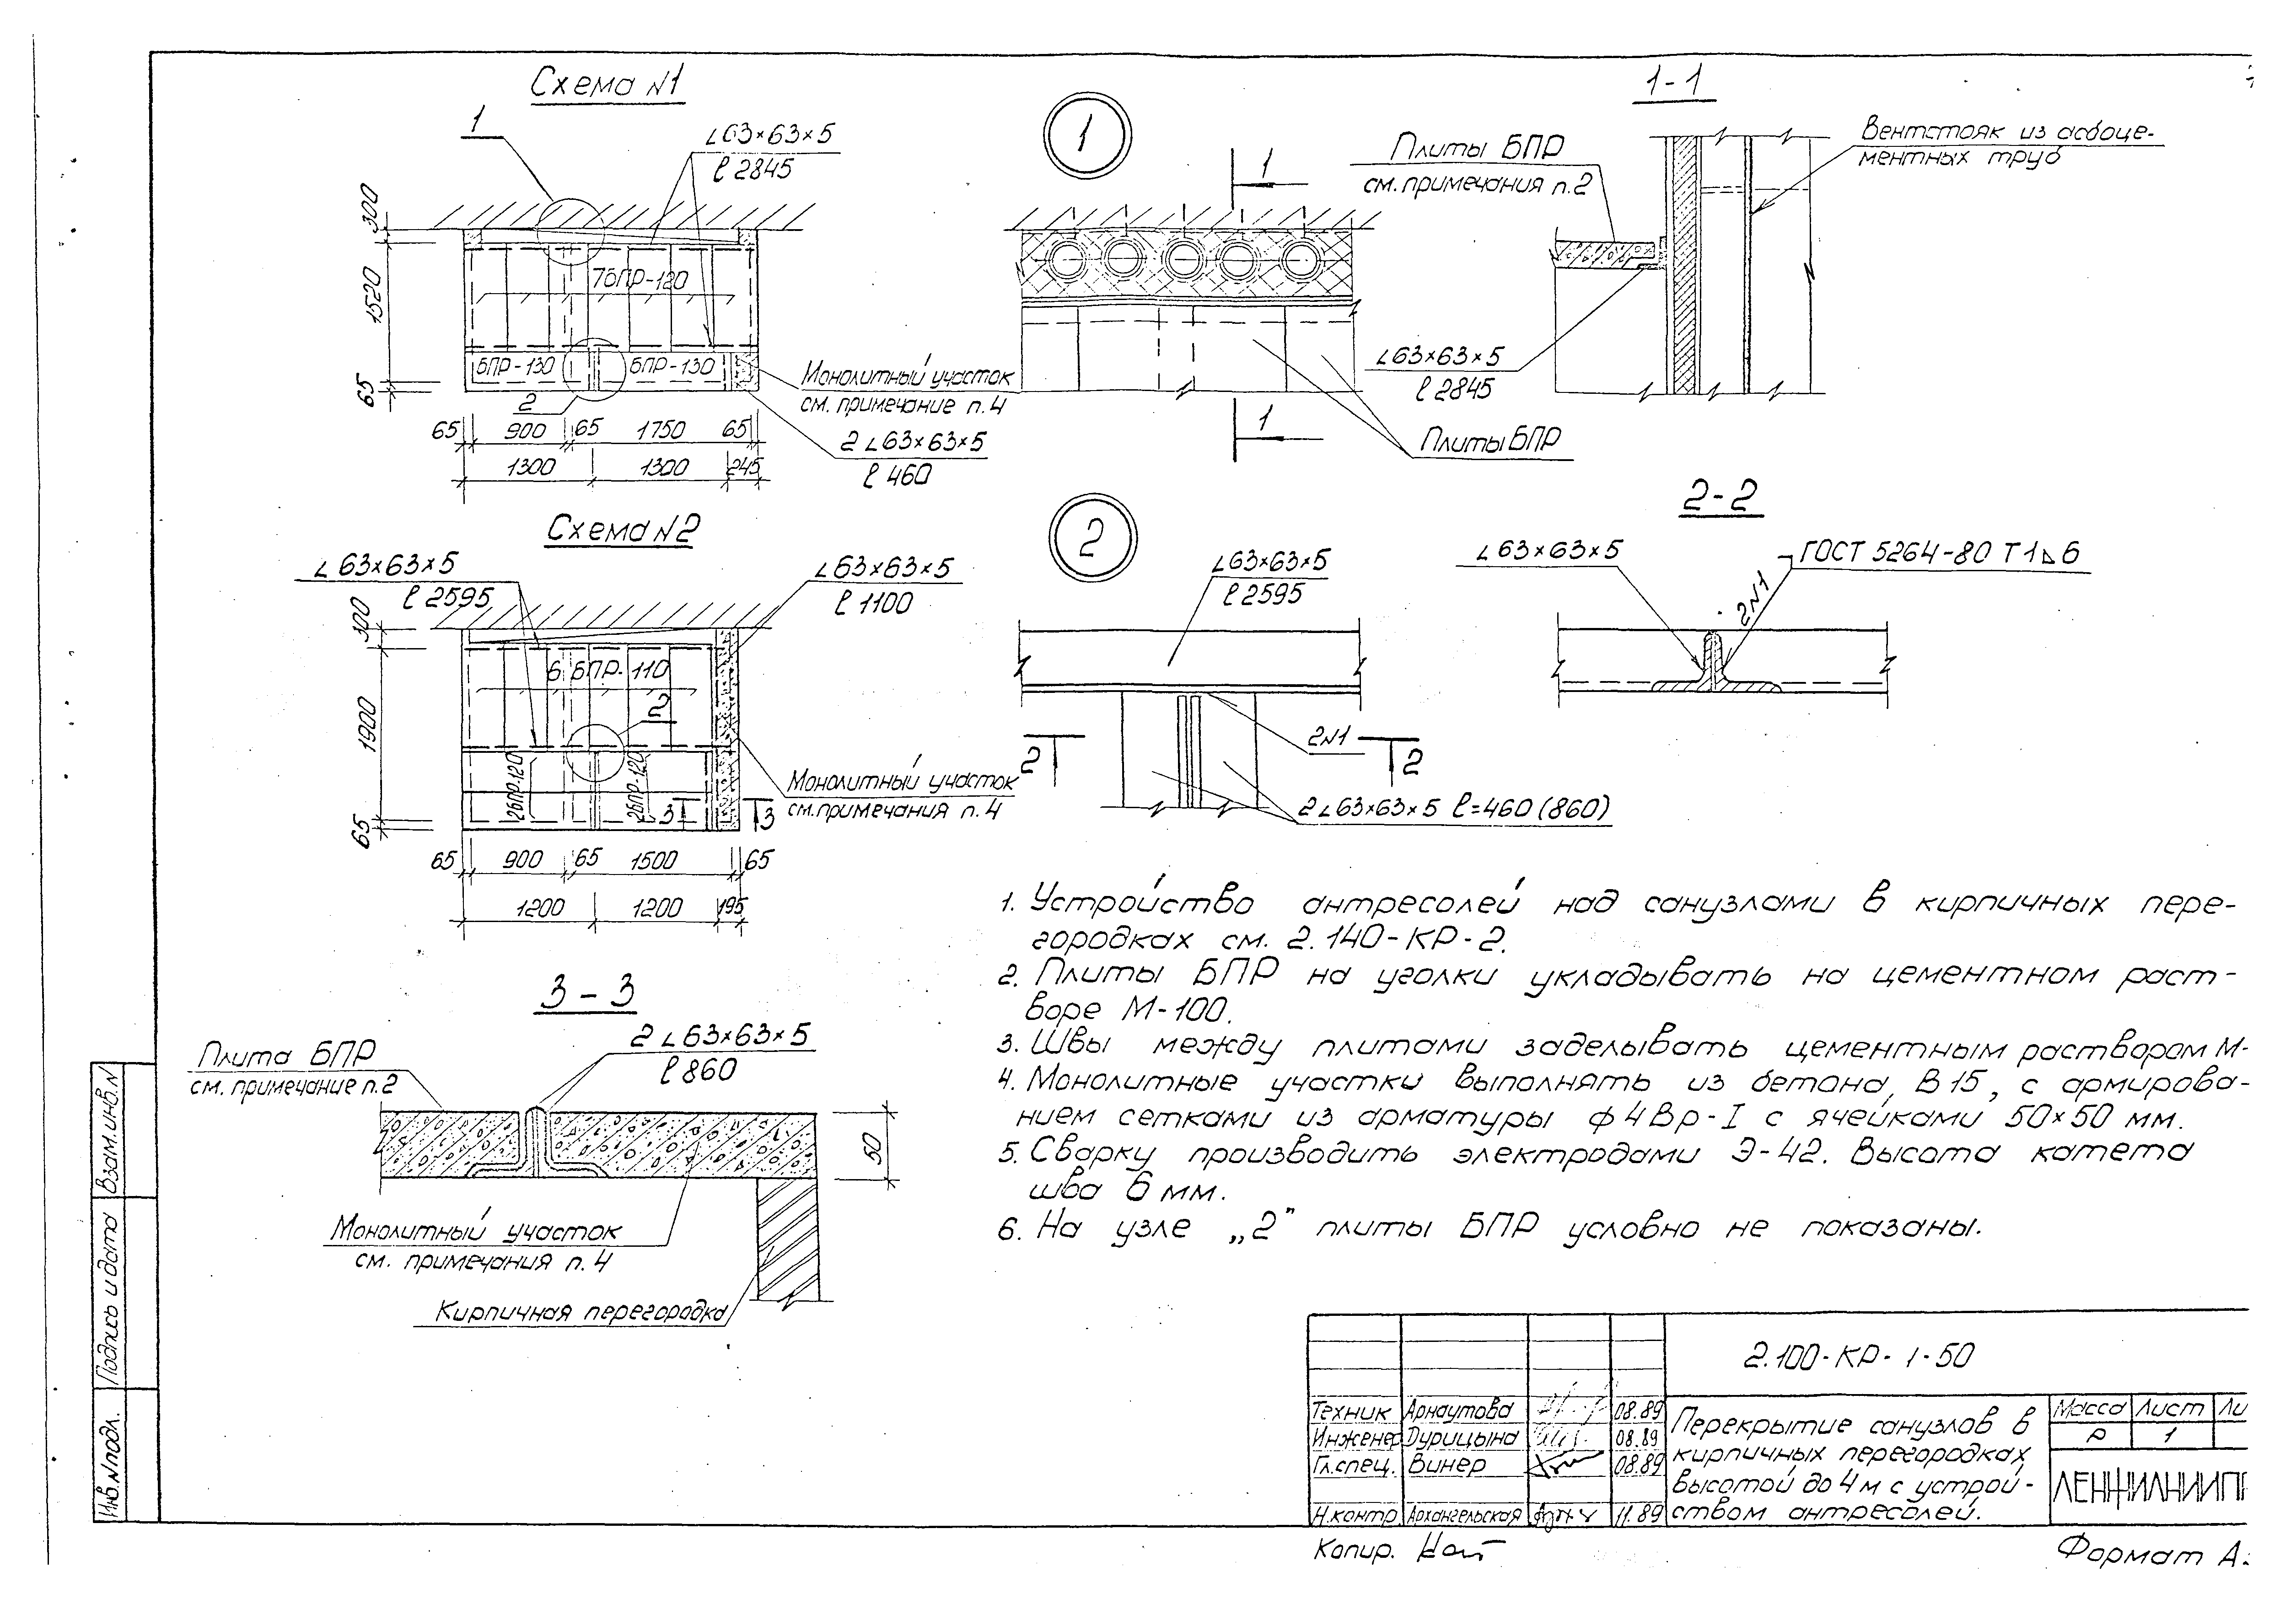 Схема N1
1
∟63×63×5
ℓ 2845
300
1520
65
7БПР-120
БПР-130
БПР-130
2
Монолитный участок
см. примечание п.4
65
900
65
1750
65
2 ∟63×63×5
ℓ 460
1300
1300
245
1
1
1
Плиты БПР
1-1
Плиты БПР
см. примечания п.2
Вентстояк из асбоце-
ментных труб
∟63×63×5
ℓ 2845
Схема N2
∟63×63×5
ℓ 2595
∟63×63×5
ℓ 1100
300
1900
65
6 БПР-110
2
2БПР-120
2БПР-120
3
3
Монолитный участок
см. примечания п.4
65
900
65
1500
65
1200
1200
195
2
∟63×63×5
ℓ 2595
2N1
2
2
2∟63×63×5 ℓ=460 (860)
2-2
∟63×63×5
ГОСТ 5264-80 Т1⊿6
2N1
3-3
Плита БПР
см. примечание п.2
2 ∟63×63×5
ℓ 860
50
Монолитный участок
см. примечания п.4
Кирпичная перегородка
1. Устройство антресолей над санузлами в кирпичных пере-
городках см. 2.140-КР-2.
2. Плиты БПР на уголки укладывать на цементном раст-
воре М-100.
3. Швы между плитами заделывать цементным раствором М-
4. Монолитные участки выполнять из бетона, В15, с армирова-
нием сетками из арматуры ф4Вр-I с ячейками 50×50 мм.
5. Сварку производить электродами Э-42. Высота катета
шва 6 мм.
6. На узле „2" плиты БПР условно не показаны.
Взам. инв. N
Подпись и дата
Инв. N подл.
2.100-КР-1-50
Техник Арнаутова 08.89
Инженер Дурицына 08.89
Гл.спец. Винер 08.89
Н.контр. Архангельская 11.89
Перекрытие санузлов в
кирпичных перегородках
высотой до 4 м с устрой-
ством антресолей.
Масса Лист Ли
Р 1
ЛЕНЖИЛНИИП
Копир.
Формат А